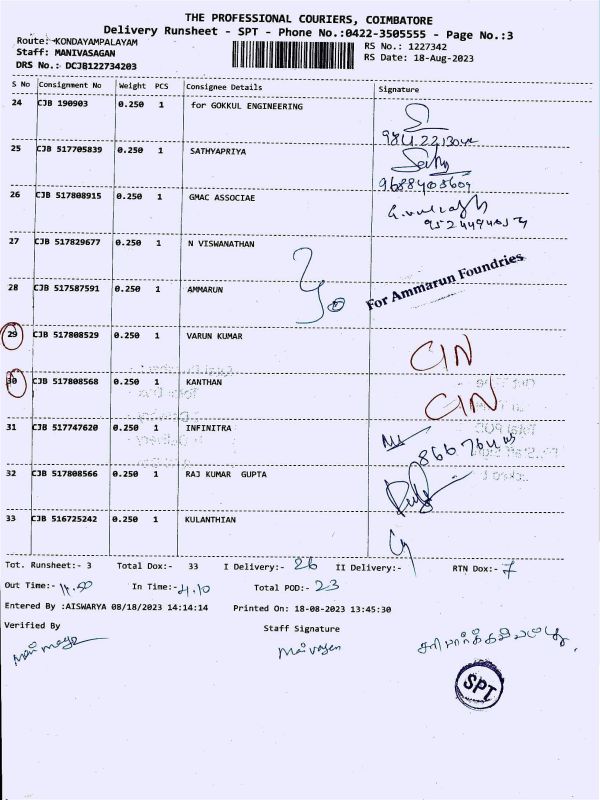 THE PROFESSIONAL COURIERS, COIMBATORE
Delivery Runsheet - SPT - Phone No.:0422-3505555 - Page No.:3
Route:-KONDAYAMPALAYAM
RS No.: 1227342
Staff: MANIVASAGAN
RS Date: 18-Aug-2023
DRS No.: DCJB122734203
S No Consignment No Weight PCS Consignee Details Signature
24 CJB 190903 0.250 1 for GOKKUL ENGINEERING
25 CJB 517705839 0.250 1 SATHYAPRIYA
26 CJB 517808915 0.250 1 GMAC ASSOCIAE
27 CJB 517829677 0.250 1 N VISWANATHAN
28 CJB 517587591 0.250 1 AMMARUN For Ammarun Foundries
29 CJB 517808529 0.250 1 VARUN KUMAR CIN
30 CJB 517808568 0.250 1 KANTHAN CIN
31 CJB 517747620 0.250 1 INFINITRA
32 CJB 517808566 0.250 1 RAJ KUMAR GUPTA
33 CJB 516725242 0.250 1 KULANTHIAN
Tot. Runsheet:- 3 Total Dox:- 33 I Delivery:- 26 II Delivery:- RTN Dox:- 7
Out Time:- In Time:- 4.10 Total POD:- 23
Entered By :AISWARYA 08/18/2023 14:14:14 Printed On: 18-08-2023 13:45:30
Verified By Staff Signature
SPT